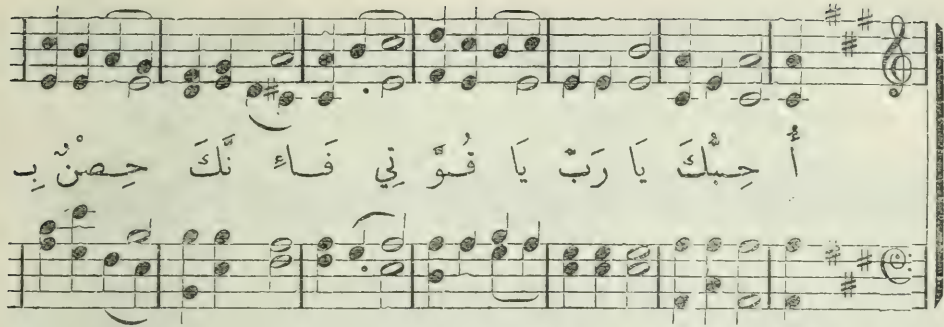 أُ حِبُّكَ يَا رَبِّ يَا قُوَّ تِي فَاءِ نَّكَ حِصْنٌ بِ